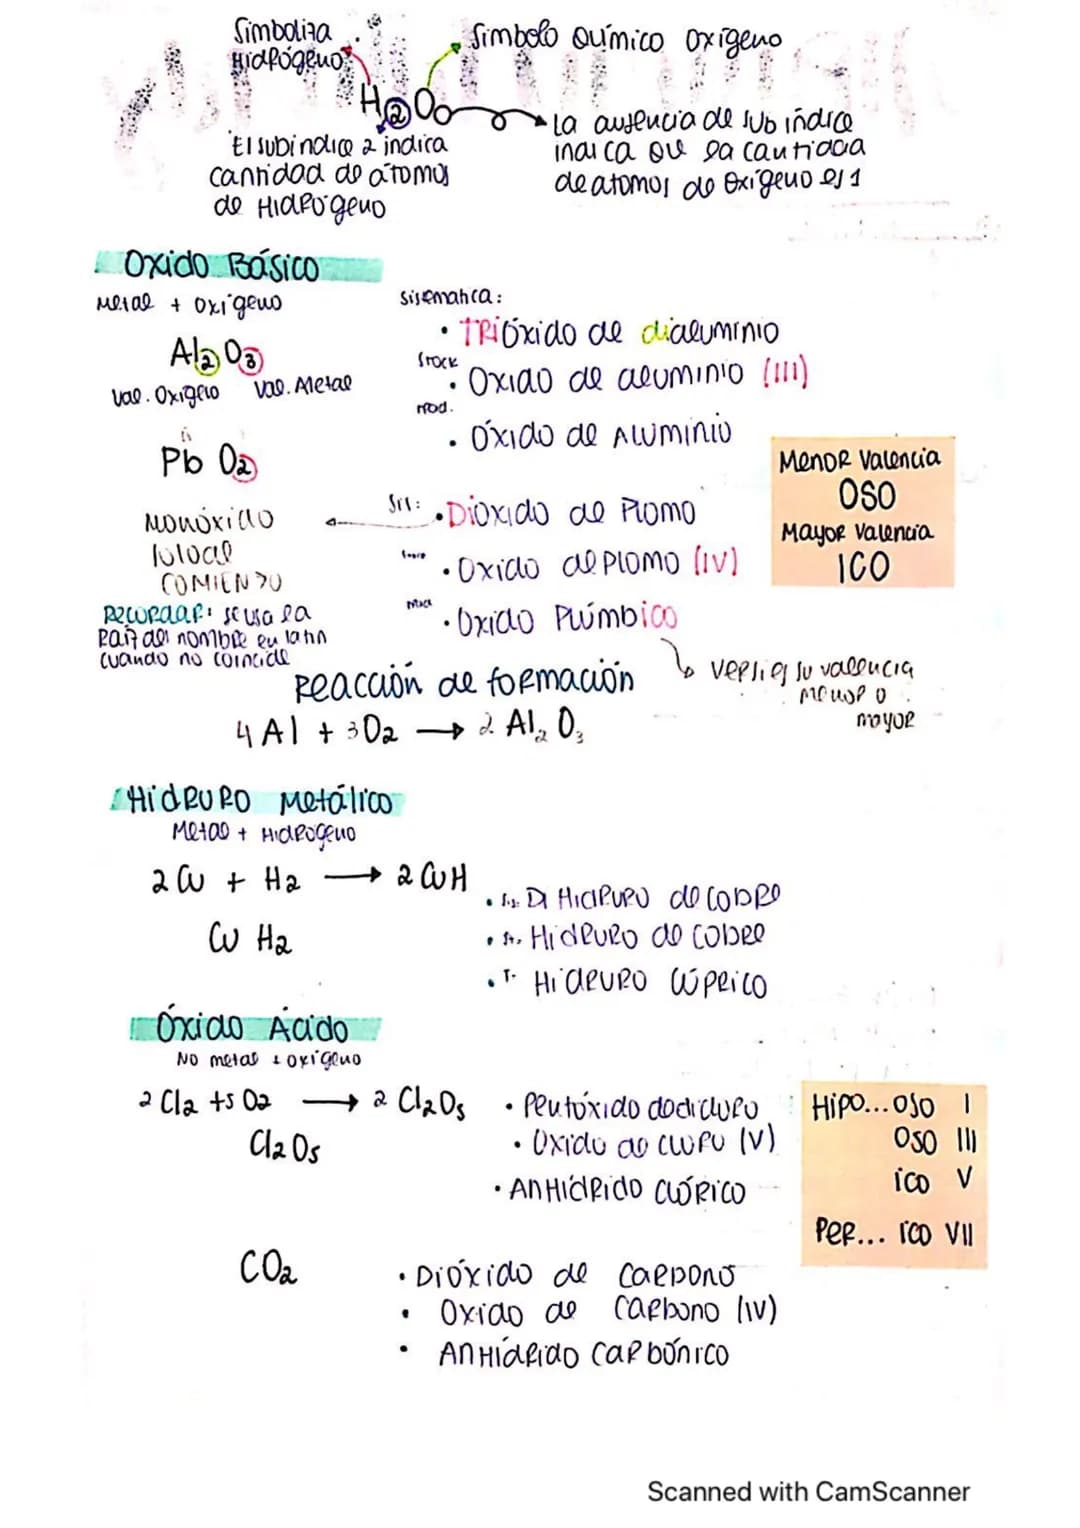 Simboliza
Hidrógeno
Símbolo Químico Oxígeno
H2O
El subíndice 2 indica
cantidad de átomos
de Hidrógeno
La ausencia de subíndice
indica que la cantidad
de atomos de Oxígeno es 1
Oxido Básico
Metal + Oxígeno
Sisematica:
Al2 O3
• TRIÓxido de dialuminio
Stock
• Oxido de aluminio (III)
Val. Oxígeno Val. Metal
Trad.
• Óxido de Aluminio
Pb O2
Menor Valencia
OSO
Mayor Valencia
ICO
Monóxido
COMIENZO
Sis:
• Dióxido de Plomo
• Oxido de Plomo (IV)
• Oxido Plúmbico
Recordar: se usa la
raíz del nombre en latín
cuando no coincide
ver si es su valencia
menor o
mayor
Reacción de formación
4 Al + 3O2 → 2 Al2 O3
Hidruro Metálico
Metal + Hidrógeno
2 Cu + H2 → 2 CuH
Cu H2
• Di Hidruro de Cobre
• St. Hidruro de Cobre
• T. Hidruro Cúprico
Óxido Ácido
No metal + oxígeno
2 Cl2 + 5 O2 → 2 Cl2O5
Cl2 O5
• Pentóxido de dicloro
• Oxido de cloro (V)
• Anhídrido Clórico
Hipo... oso I
oso III
ico V
Per... ico VII
CO2
• Dióxido de Carbono
• Oxido de Carbono (IV)
• Anhídrido Carbónico
Scanned with CamScanner